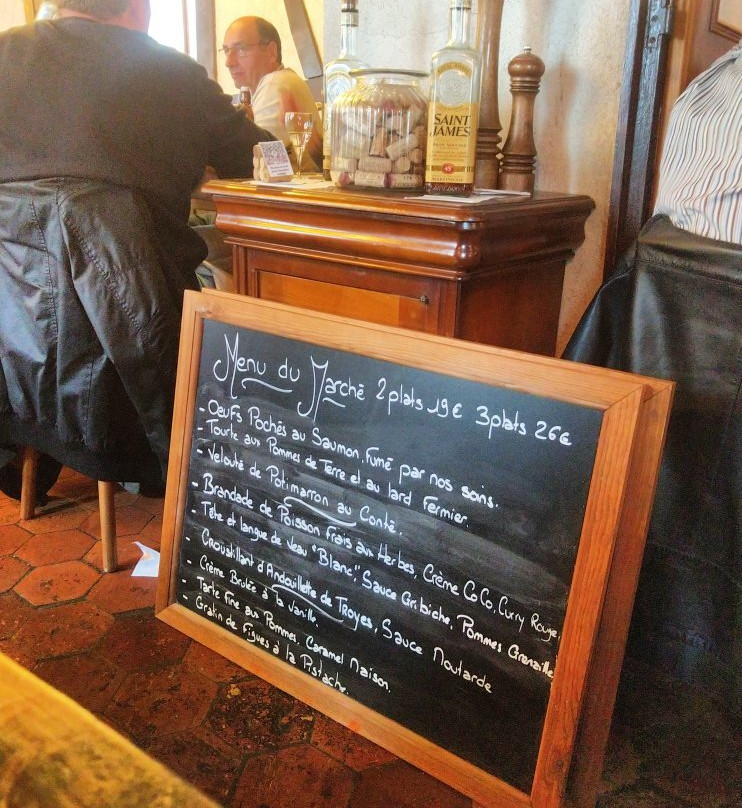 SAINT JAMES
45
Menu du Marché 2 plats 19€ 3 plats 26€
- Oeufs Pochés au Saumon, fumé par nos soins.
- Tourte aux Pommes de Terre et au lard Fermier.
- Velouté de Potimarron au Conté.
- Brandade de Poisson Frais aux Herbes, Crème CoCo, Curry Rouge
- Tête et langue de Veau "Blanc", Sauce Gribiche, Pommes Grenaille
- Croustillant d'Andouillette de Troyes, Sauce Moutarde
- Crème Brulée à la vanille.
- Tarte Fine aux Pommes, Caramel Maison.
- Gratin de Figues à la Pistache.